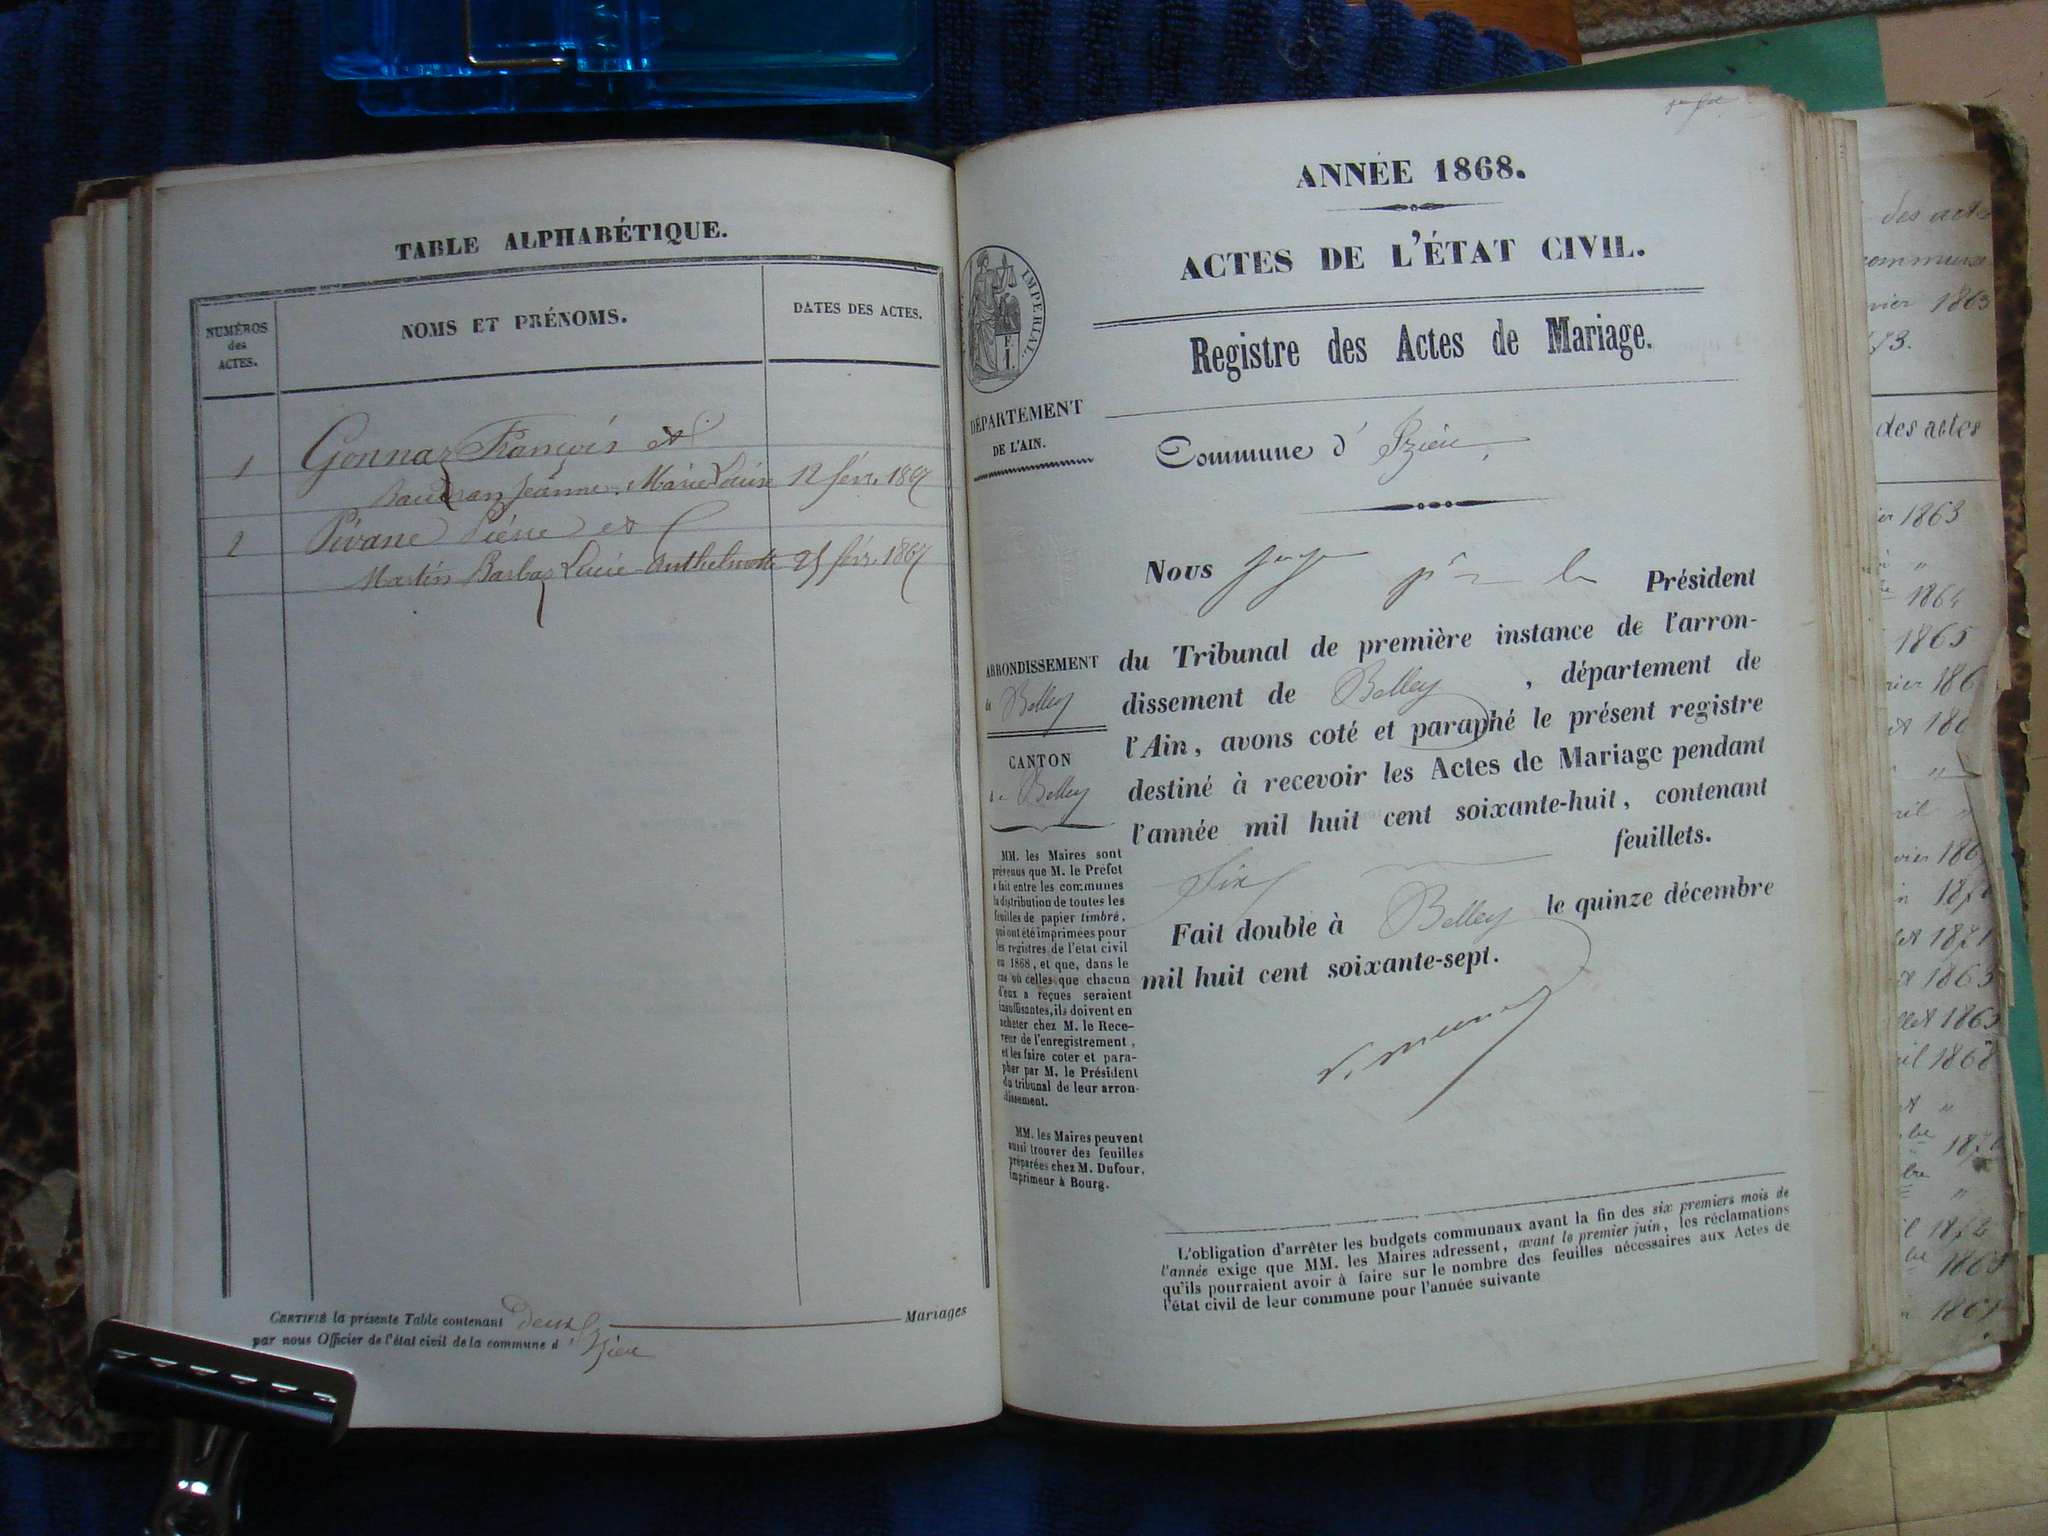 TABLE ALPHABÉTIQUE.
NUMÉROS
des
ACTES.
NOMS ET PRÉNOMS.
DATES DES ACTES.
1 Gonnaz François et
Baudran Jeanne Marie Louise 12 févr. 1867
2 Pivane Pierre et
Martin Barbaz Lucie Anthelmette 25 févr. 1867
CERTIFIÉ la présente Table contenant deux Mariages
par nous Officier de l'état civil de la commune d'Izieu
ANNÉE 1868.
ACTES DE L'ÉTAT CIVIL.
IMPÉRIAL.
Registre des Actes de Mariage.
DÉPARTEMENT
DE L'AIN.
Commune d'Izieu
Nous juge pr le Président
du Tribunal de première instance de l'arron-
dissement de Belley, département de
l'Ain, avons coté et paraphé le présent registre
destiné à recevoir les Actes de Mariage pendant
l'année mil huit cent soixante-huit, contenant
six feuillets.
Fait double à Belley le quinze décembre
mil huit cent soixante-sept.
ARRONDISSEMENT
de Belley
CANTON
de Belley
MM. les Maires sont
prévenus que M. le Préfet
a fait entre les communes
la distribution de toutes les
feuilles de papier timbré,
qui ont été imprimées pour
les registres de l'état civil
en 1868, et que, dans le
cas où celles que chacun
d'eux a reçues seraient
insuffisantes, ils doivent en
acheter chez M. le Rece-
veur de l'enregistrement,
et les faire coter et para-
pher par M. le Président
du tribunal de leur arron-
dissement.
MM. les Maires peuvent
aussi trouver des feuilles
préparées chez M. Dufour,
imprimeur à Bourg.
L'obligation d'arrêter les budgets communaux avant la fin des six premiers mois de
l'année exige que MM. les Maires adressent, avant le premier juin, les réclamations
qu'ils pourraient avoir à faire sur le nombre des feuilles nécessaires aux Actes de
l'état civil de leur commune pour l'année suivante
des acte
commune
vier 1863
73.
des actes
1863
"
1864
1865
rier 186
186
"
ril "
vier 186
1871
1863
llet 1863
ril 1868
"
"
1872